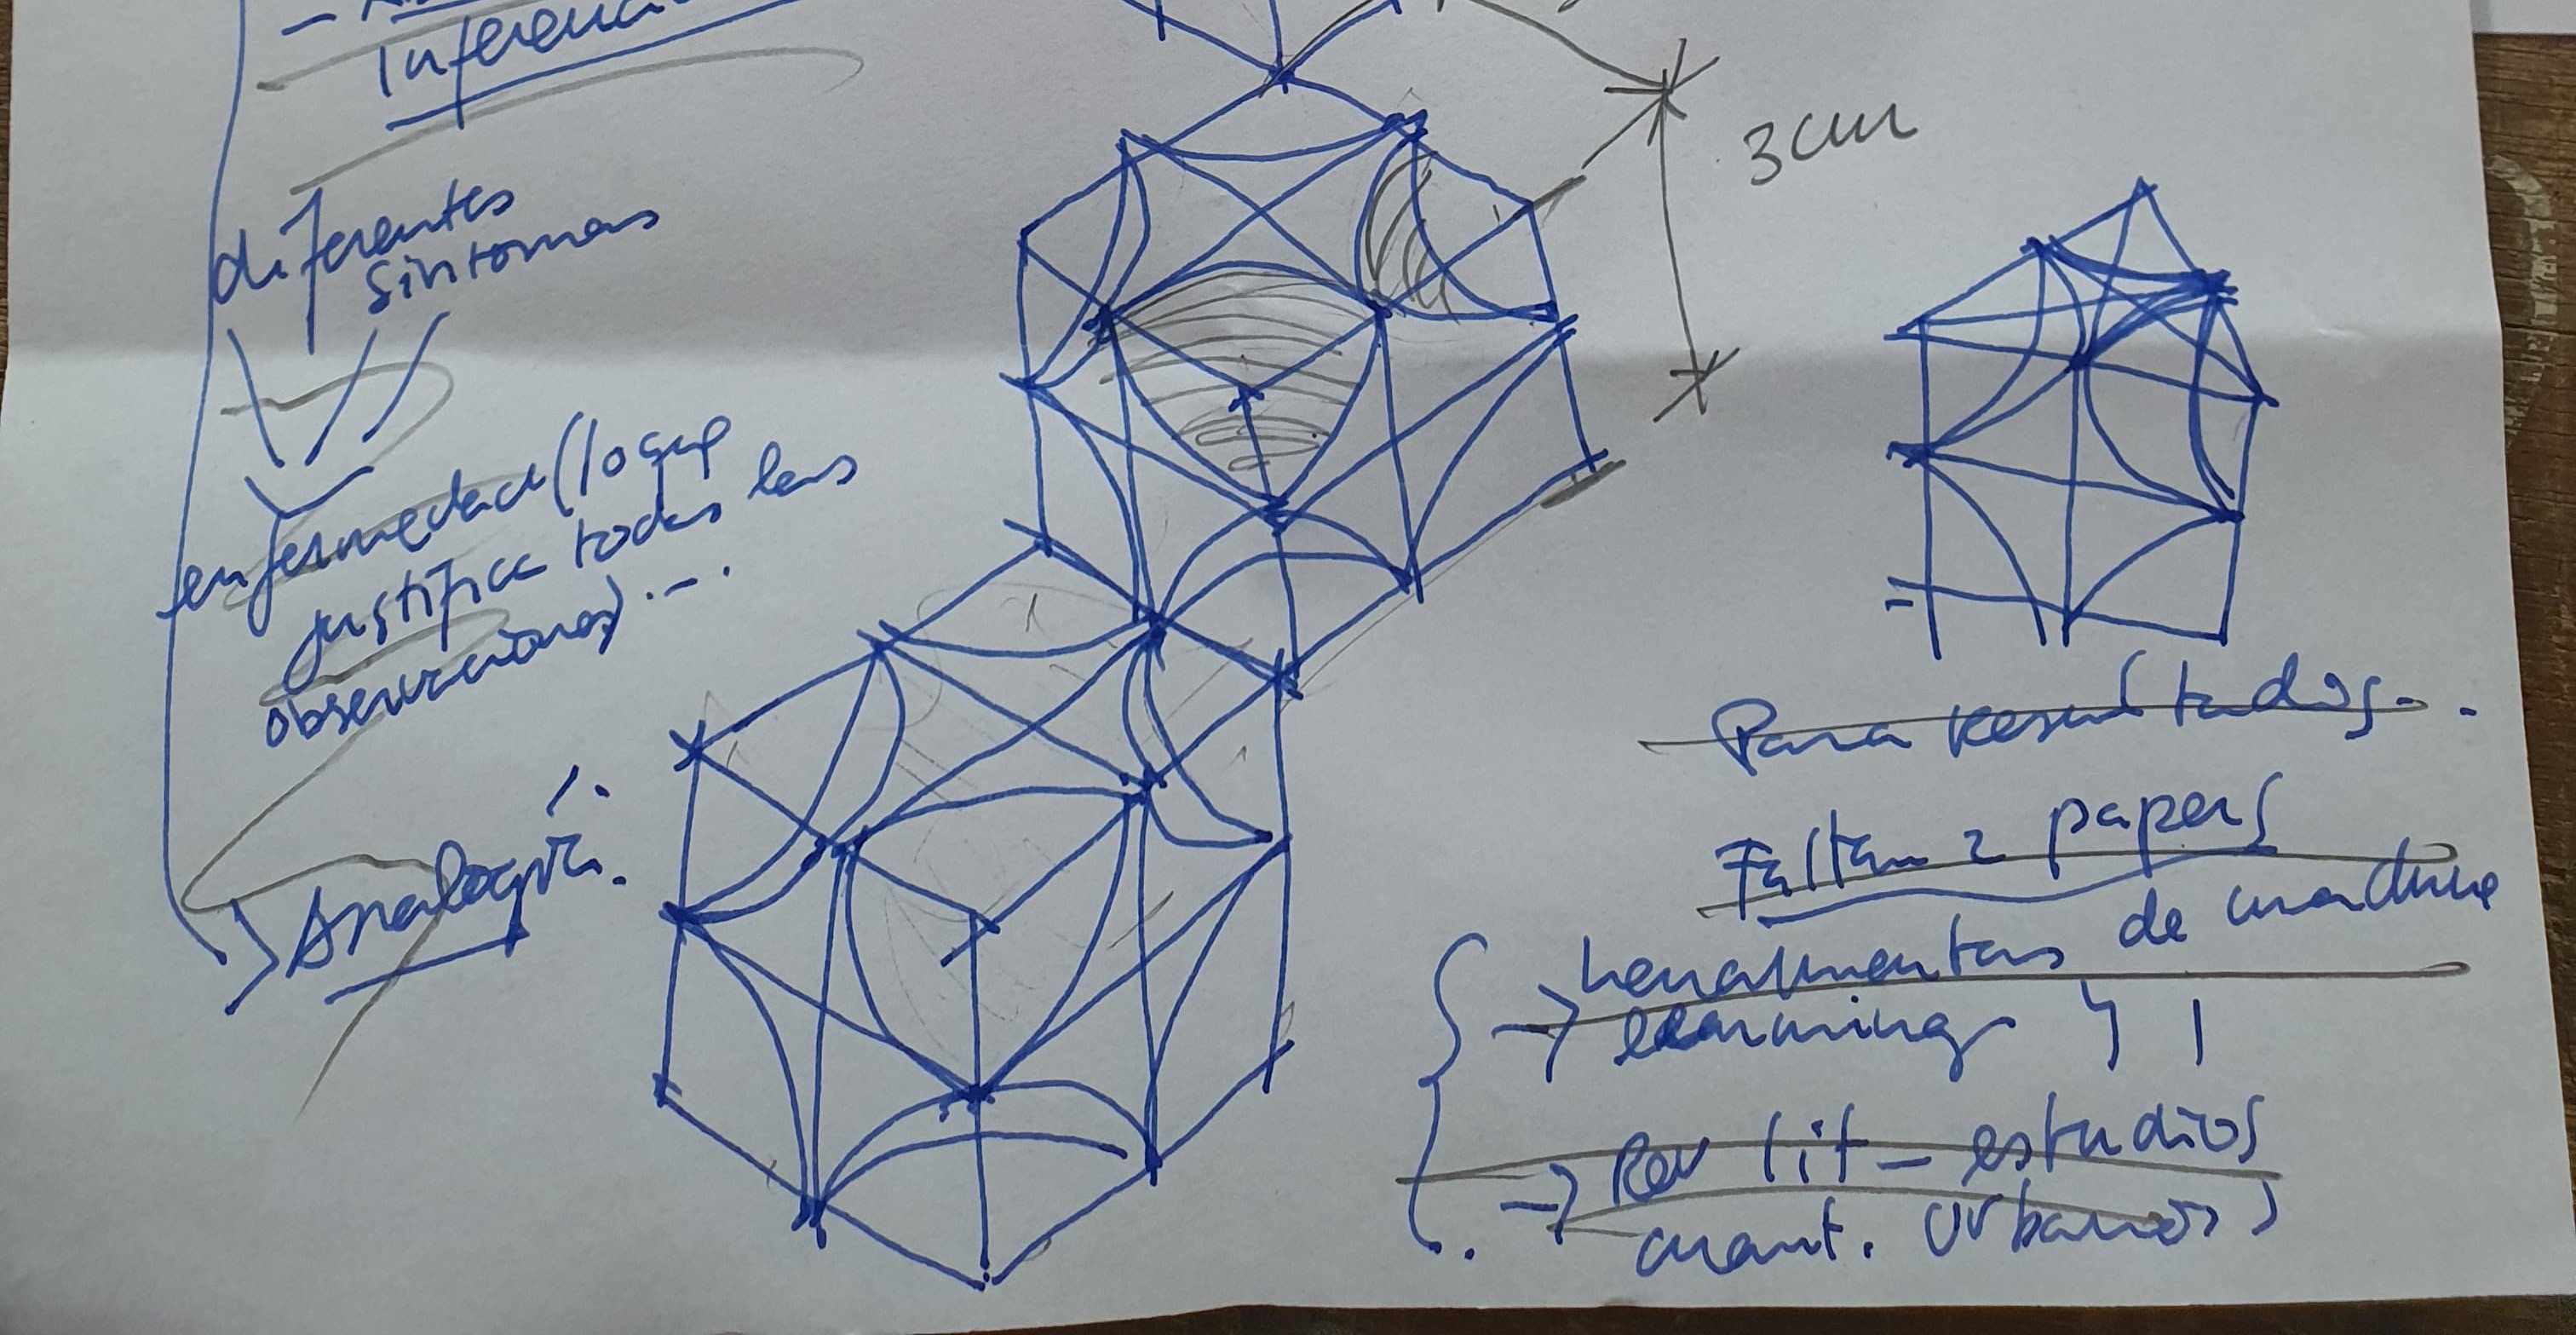 Inferenc
diferentes
sintomas
enfermedad (lo que
justifica todas las
observaciones) ...
Analogía.
3 cm
Para resultados..
Faltan 2 papers
→ herramientas de machine
learning y 1
→ Rev lit - estudios
cuant. urbanos